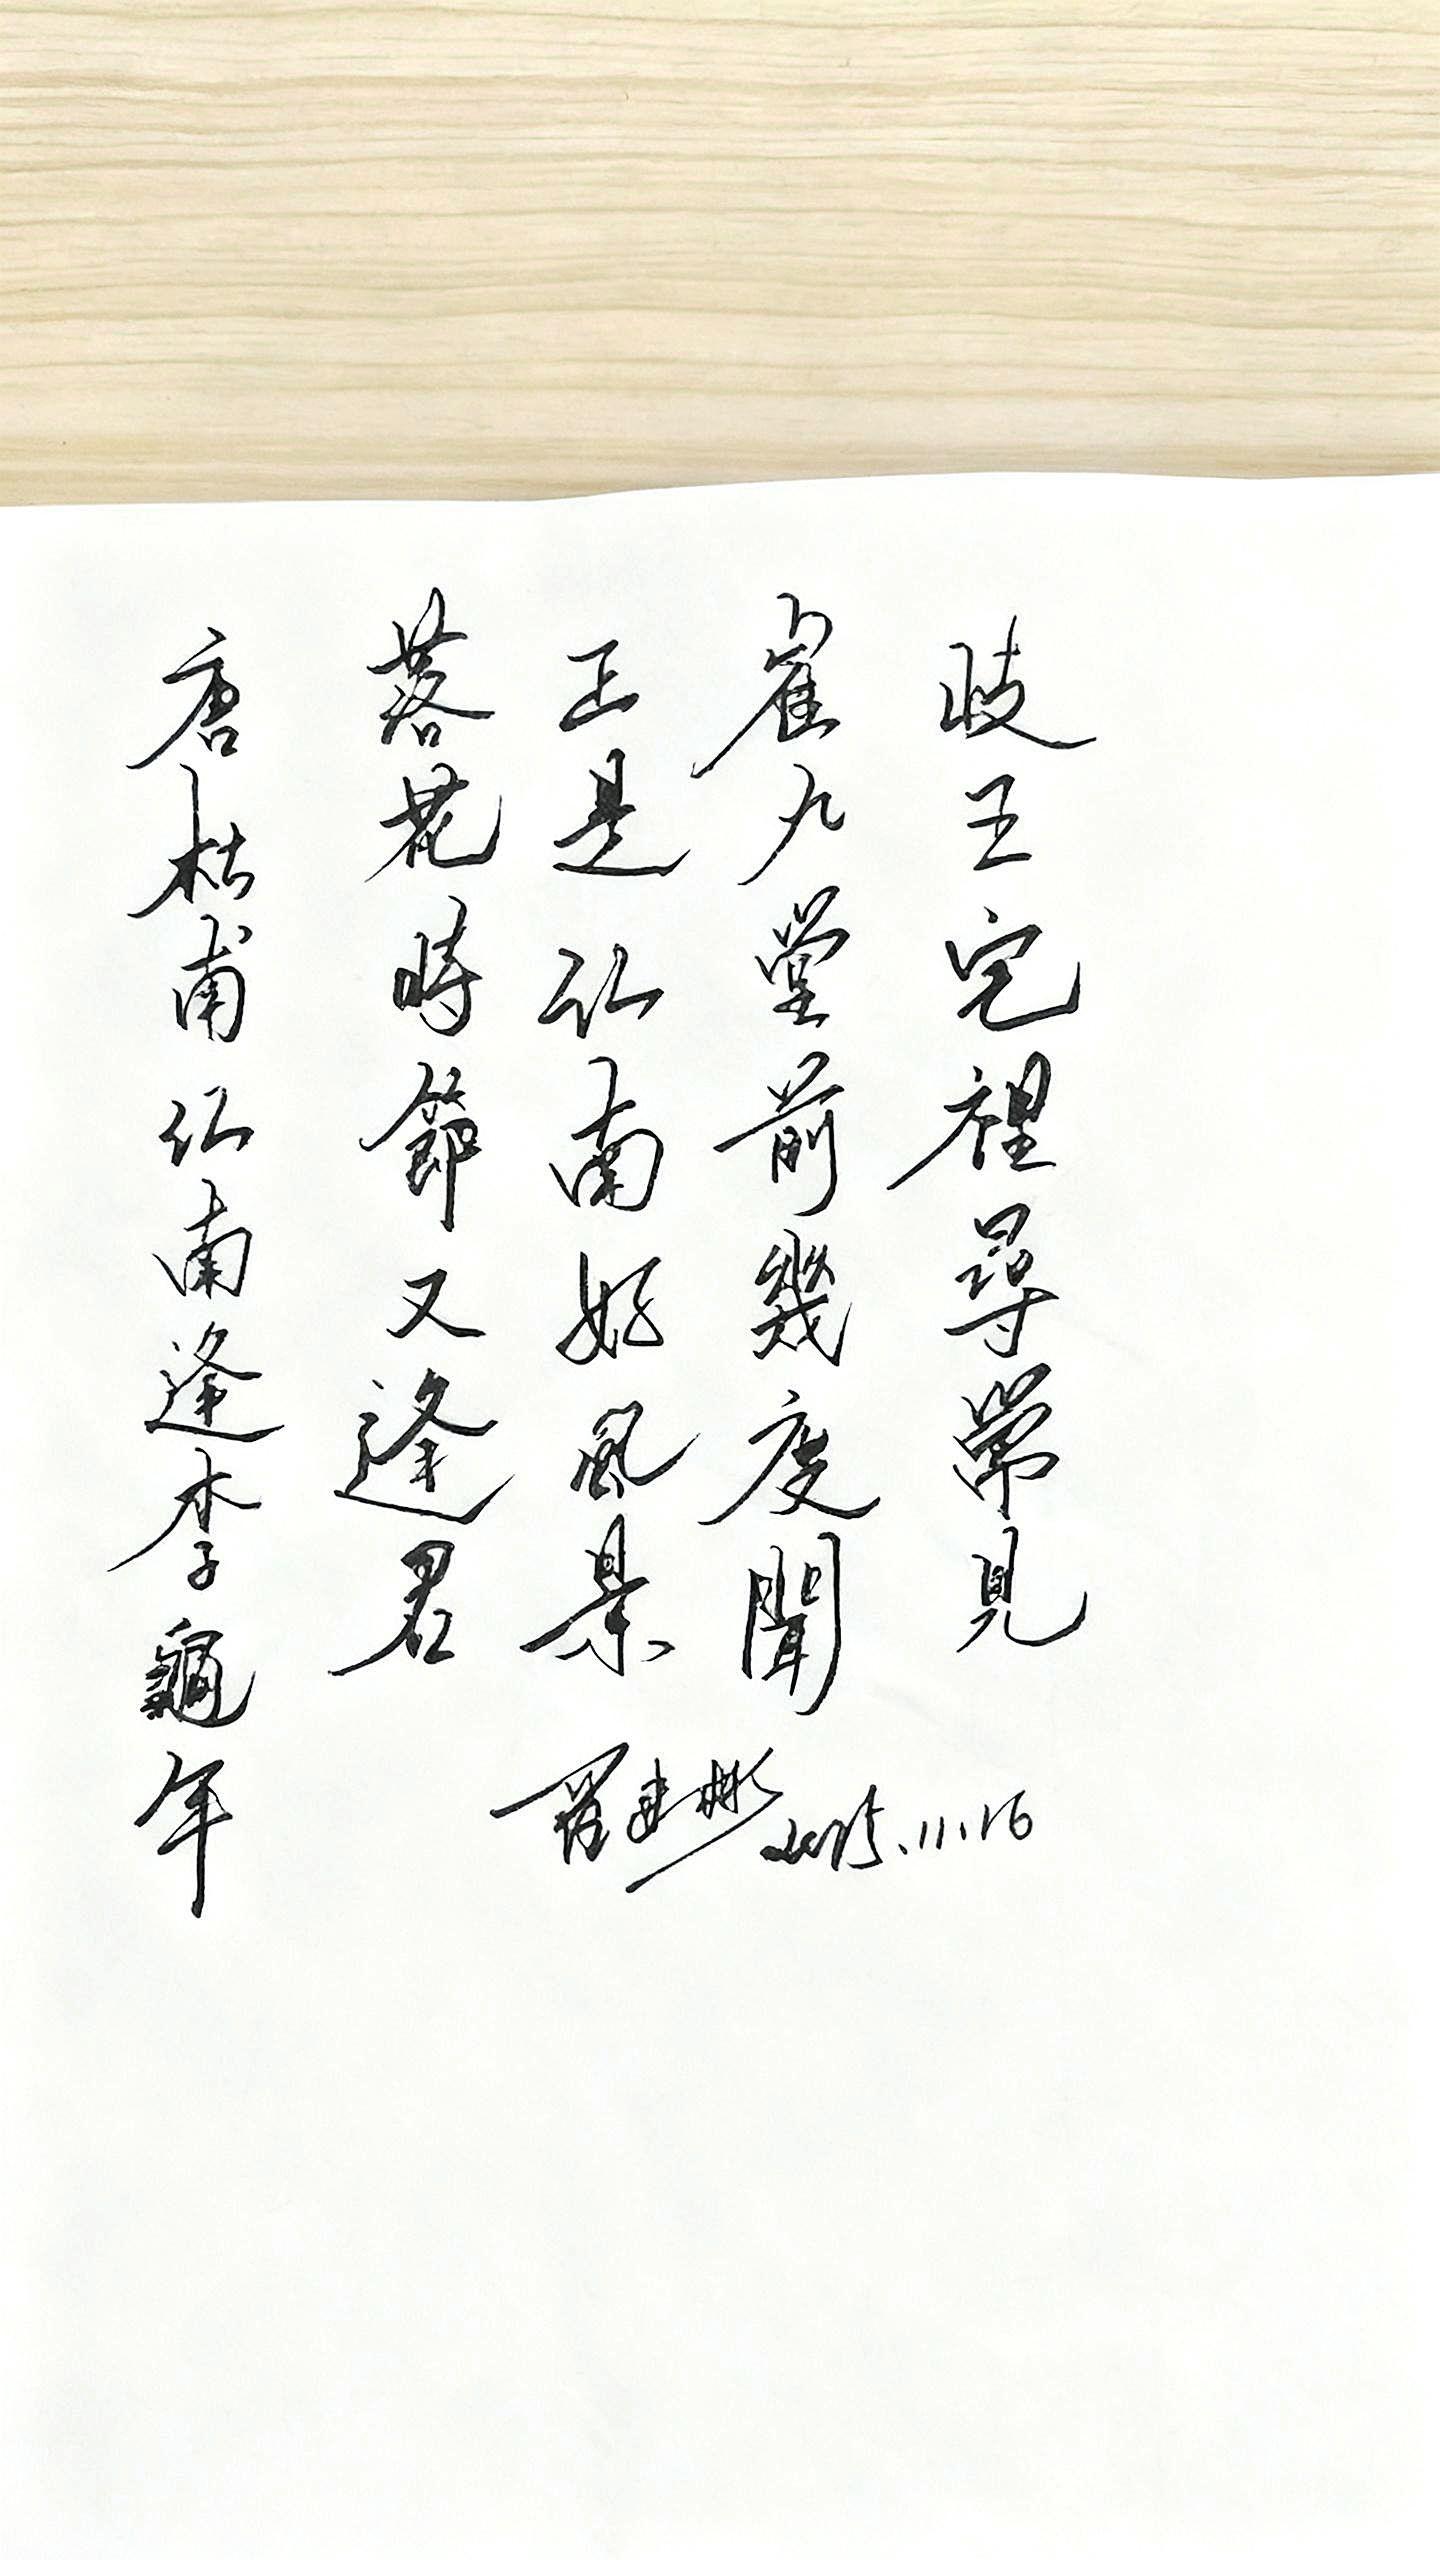 岐王宅裡尋常見
崔九堂前幾度聞
正是江南好風景
落花時節又逢君
唐杜甫江南逢李龜年
羅建彬 2025.11.16